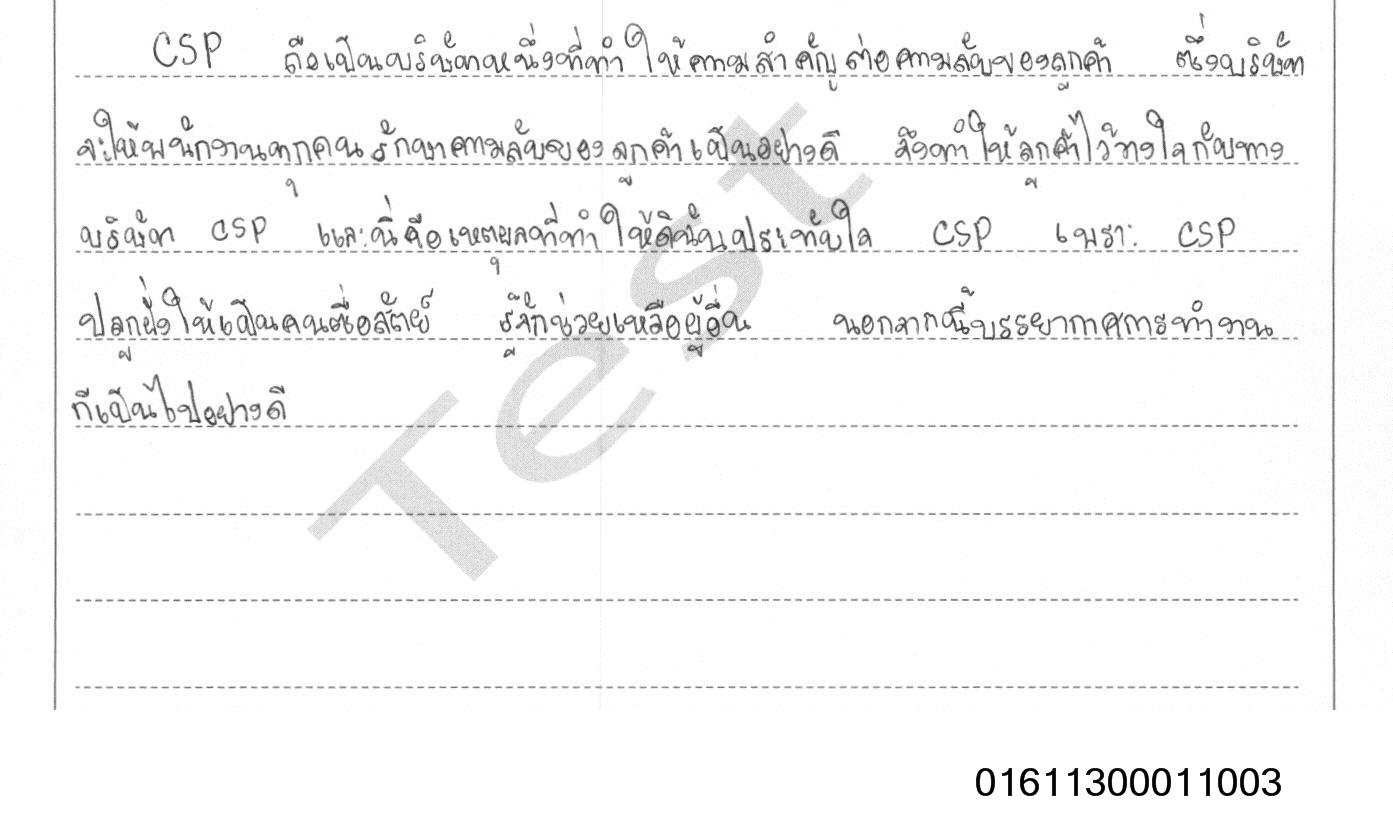 CSP ถือเป็นบริษัทหนึ่งที่ทำให้ความสำคัญต่อความลับของลูกค้า ซึ่งบริษัท
จะให้พนักงานทุกคนรักษาความลับของลูกค้าเป็นอย่างดี จึงทำให้ลูกค้าไว้วางใจกับทาง
บริษัท CSP และนี่คือเหตุผลที่ทำให้ดิฉันประทับใจ CSP เพราะ CSP
ปลูกฝั่งให้เป็นคนซื่อสัตย์ รู้จักช่วยเหลือผู้อื่น นอกจากนี้บรรยากาศการทำงาน
ก็เป็นไปอย่างดี
Test
01611300011003